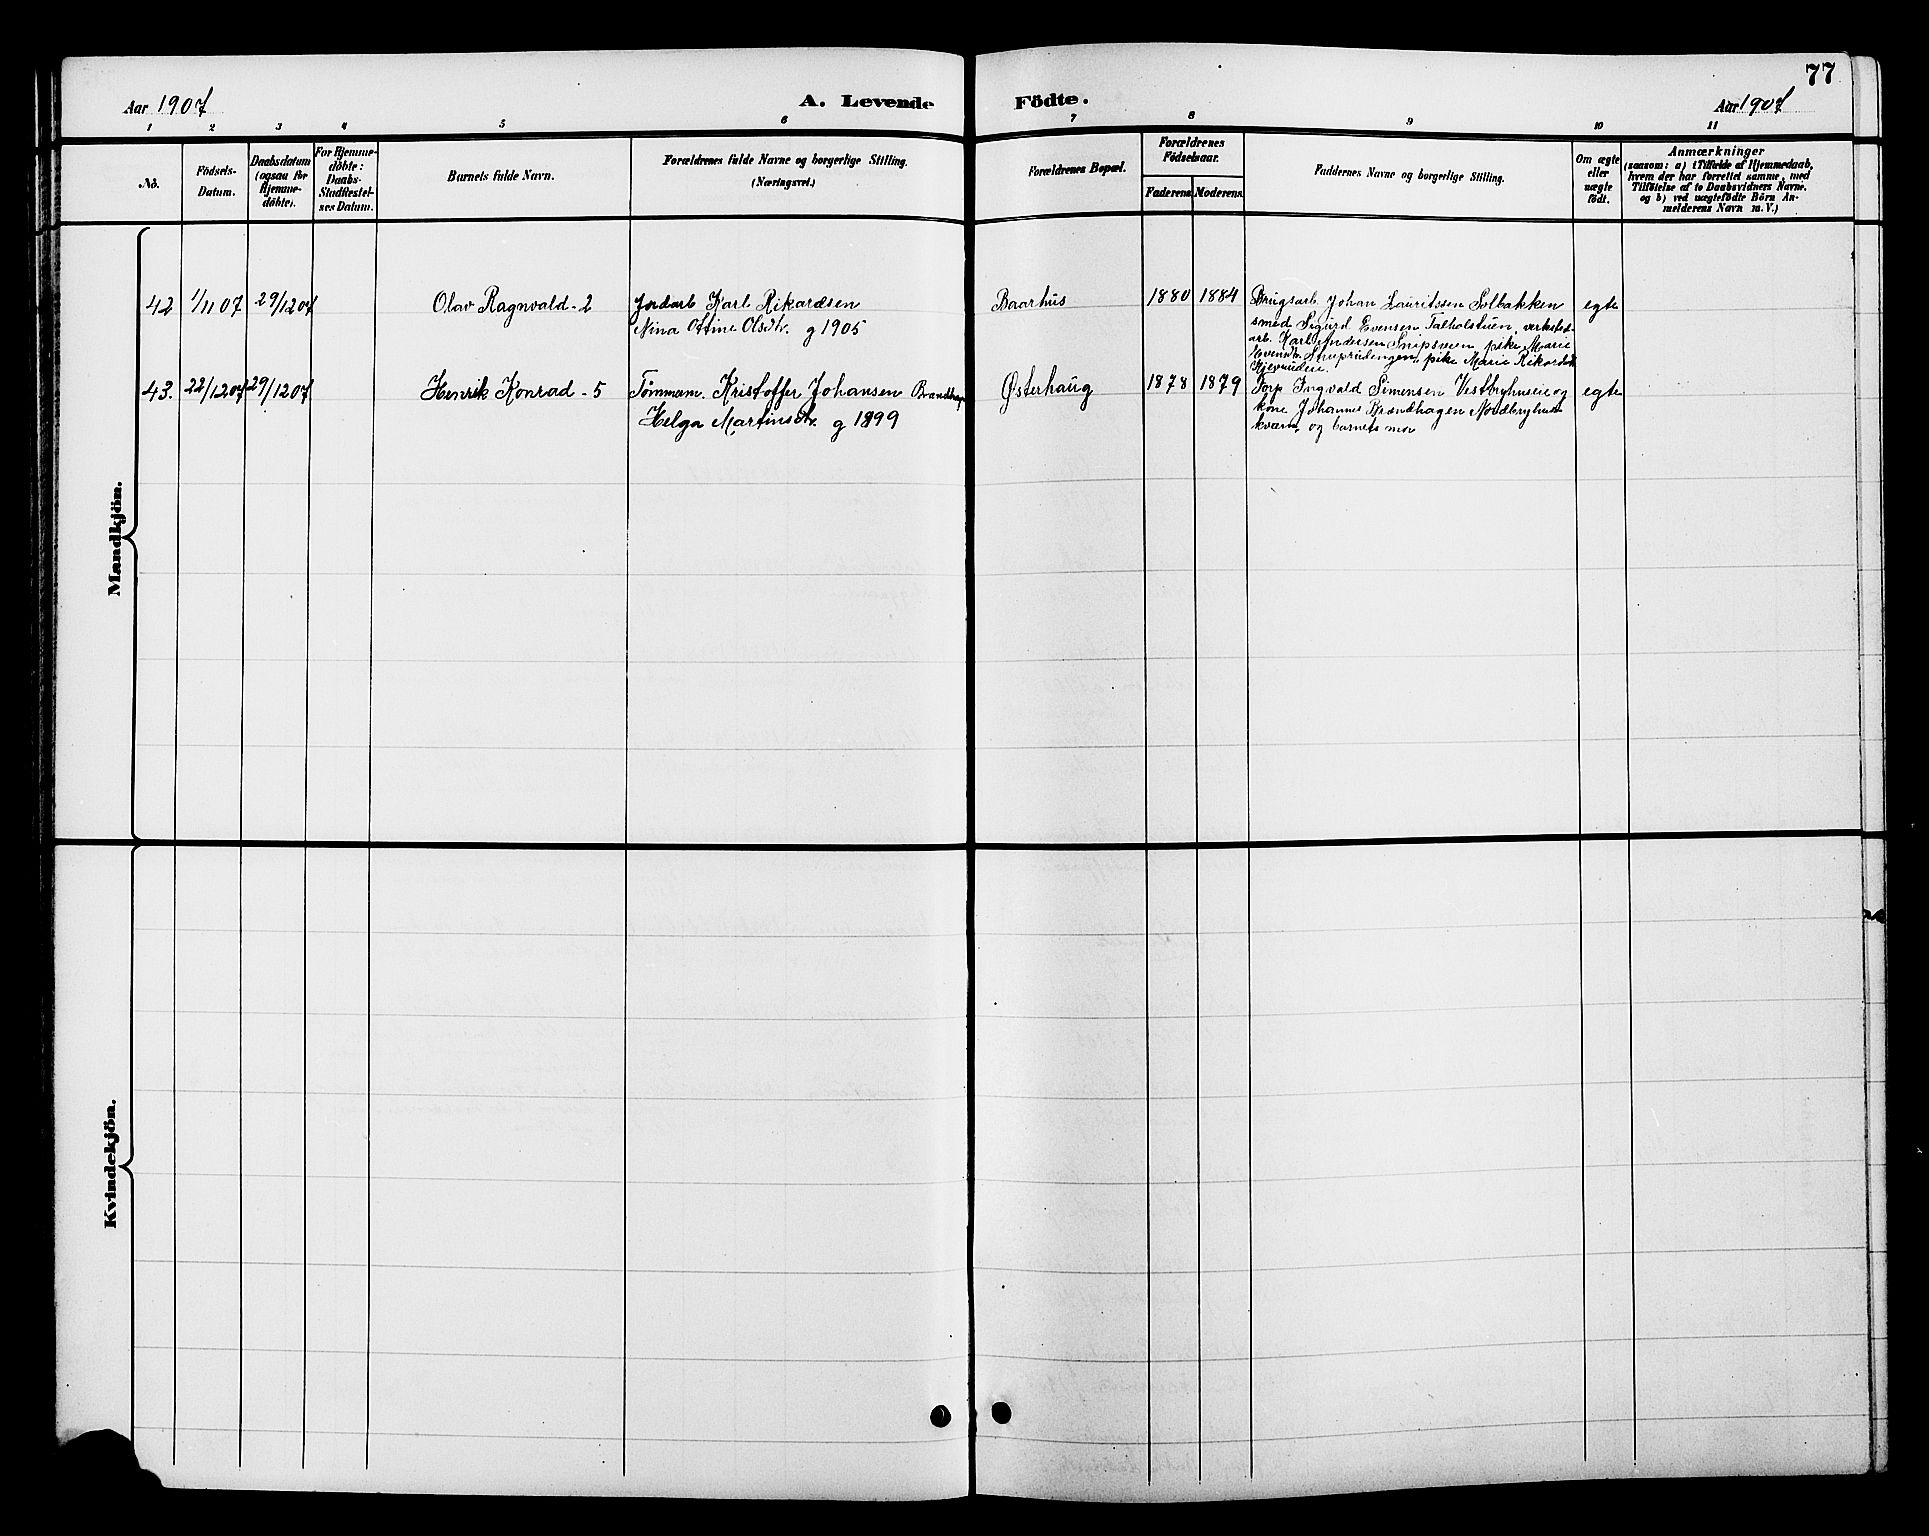 77
Aar 1907
A. Levende Födte.
Aar 1907
1 2 3 4 5 6 7 8 9 10 11
No.
Födsels-
Datum.
Daabsdatum
(ogsaa for
Hjemme-
döbte).
For Hjemme-
döbte:
Daabs-
Stadfæstel-
ses Datum.
Barnets fulde Navn.
Forældrenes fulde Navne og borgerlige Stilling.
(Næringsvei.)
Forældrenes Bopæl.
Forældrenes
Födselsaar.
Faderens. Moderens.
Faddernes Navne og borgerlige Stilling.
Om ægte
eller
uægte
födt.
Anmærkninger
(saasom: a) i Tilfælde af Hjemmedaab,
hvem der har forrettet samme, med
Tilföielse af to Daabsvidners Navne.
og b) ved uægtefödte Börn An-
melderens Navn m. V.)
Mandkjön.
42 1/11 07 29/12 07 Olav Ragnvald - 2 Jordarb Karl Rikardsen Baarhus 1880 1884 Brugsarb. Johan Lauritssen Solbakken egte
Nina Ottine Olsdtr. g 1905 smed Sigurd Evensen verksted-
arb. Karl Andersen Snipsveien, pike Marie
pike Marie
43. 22/12 07 29/12 07 Henrik Konrad - 5 Tömmerm. Kristoffer Johansen Østerhaug 1878 1879 Ingvald Simensen og egte
Helga Martinsdtr. g 1899 kone Johanne Brændhagen
kværn, og barnets mor
Kvindekjön.